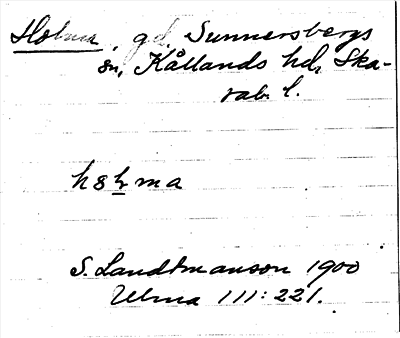 Holma, gd, Sunnersbergs
sn, Kållands hd, Ska-
rab. l.
S. Landtmanson 1900
Ulma 111:221.